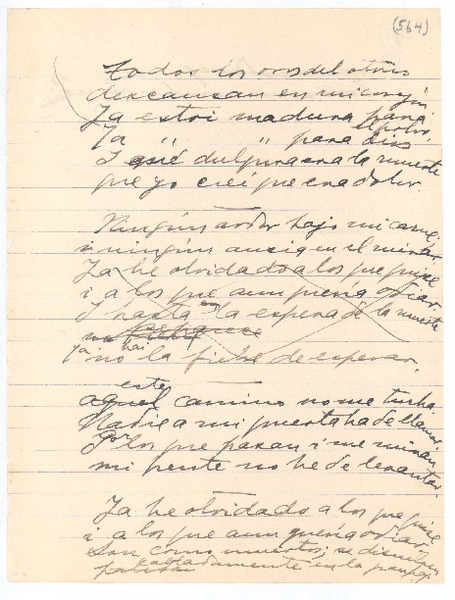 (564)
Todos los oros del otoño
descansan en mi corazón
Ya estoi madura para el polvo,
Ya " " para Dios
I qué dulzura era la muerte
que yo creí que era dolor.
Ningún ardor bajo mi carne,
i ningún ansia en el mirar.
Ya he olvidado a los que quise
i a los que aun quería odiar
I hasta en la espera de la muerte
ya no hai la fiebre de esperar.
este
aquel camino no me turba
Nadie a mi puerta ha de llamar
Por los que pasan i me miran
mi frente no he de levantar.
Ya he olvidado a los que quise
i a los que aun quería odiar
Son como muertos; se disuelven
calladamente en la